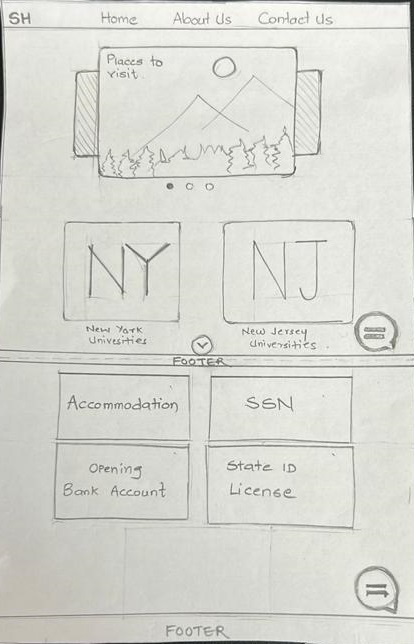 SH Home About Us Contact Us
Places to
visit.
NY NJ
New York
Univesities
New Jersey
Universities.
FOOTER
Accommodation
SSN
Opening
Bank Account
State ID
License
FOOTER